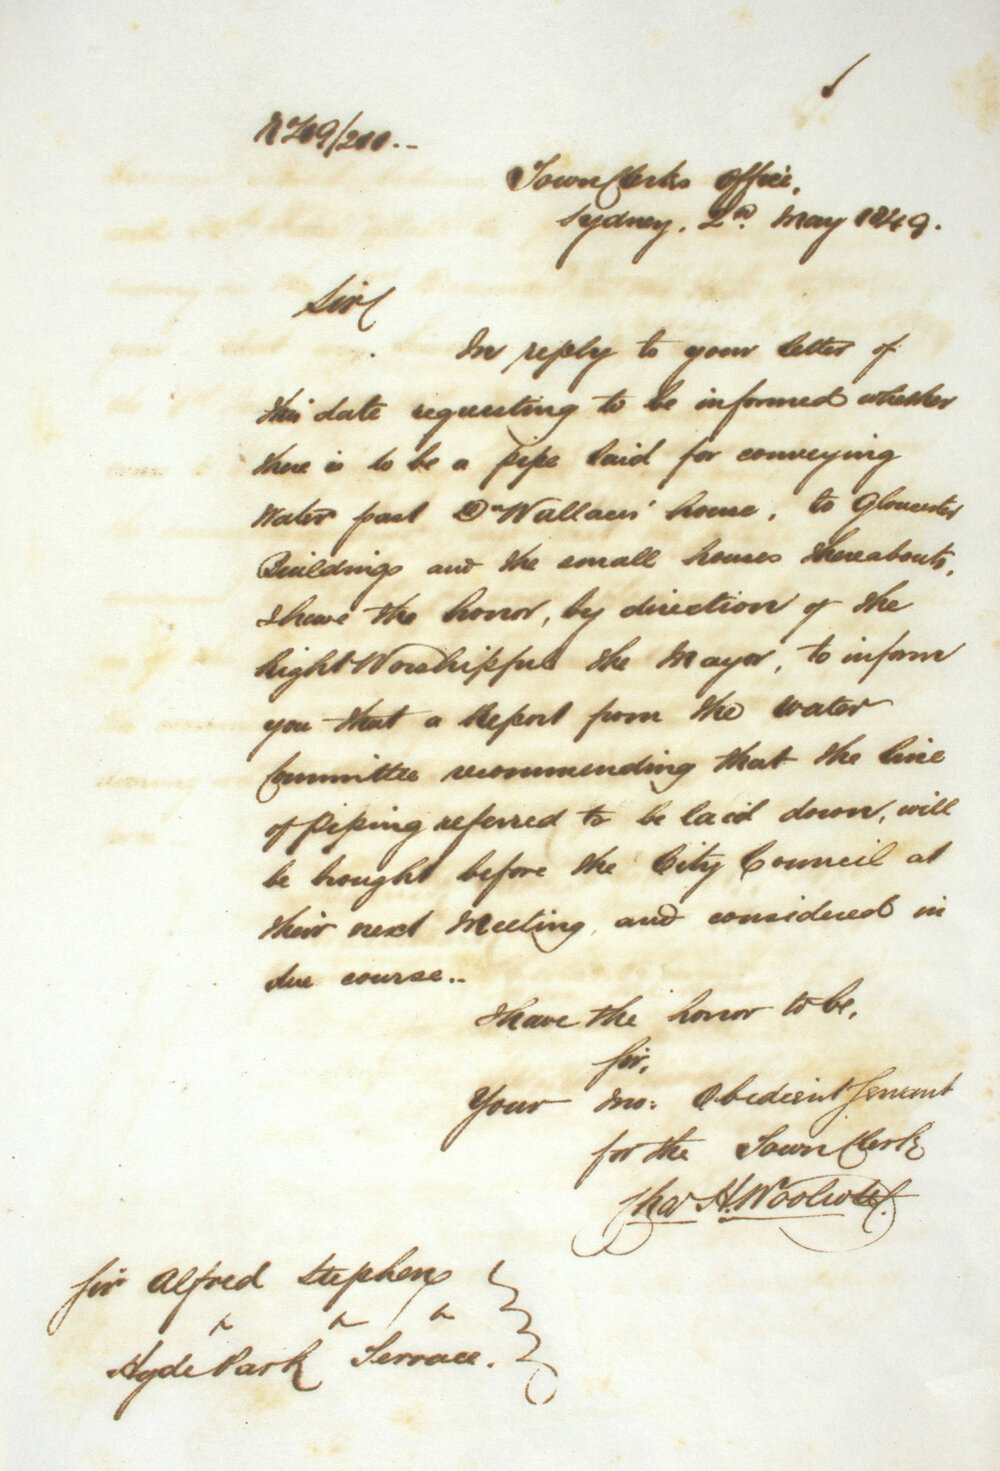 49/200..
Town Clerks Office,
Sydney, 2nd. May 1849.
Sir
In reply to your letter of
this date requesting to be informed whether
there is to be a pipe laid for conveying
Water past Dr Wallaces' house, to Gloucester
Buildings and the small houses thereabouts,
I have the honor, by direction of the
Right Worshipful the Mayor, to inform
you that a Report from the Water
Committee recommending that the line
of piping referred to be laid down, will
be brought before the City Council at
their next Meeting, and considered in
due course..
I have the honor to be,
Sir,
Your Mo: Obedient Servant
for the Town Clerk
Chas H. Woolcott.
Sir Alfred Stephen
Hyde Park Terrace.